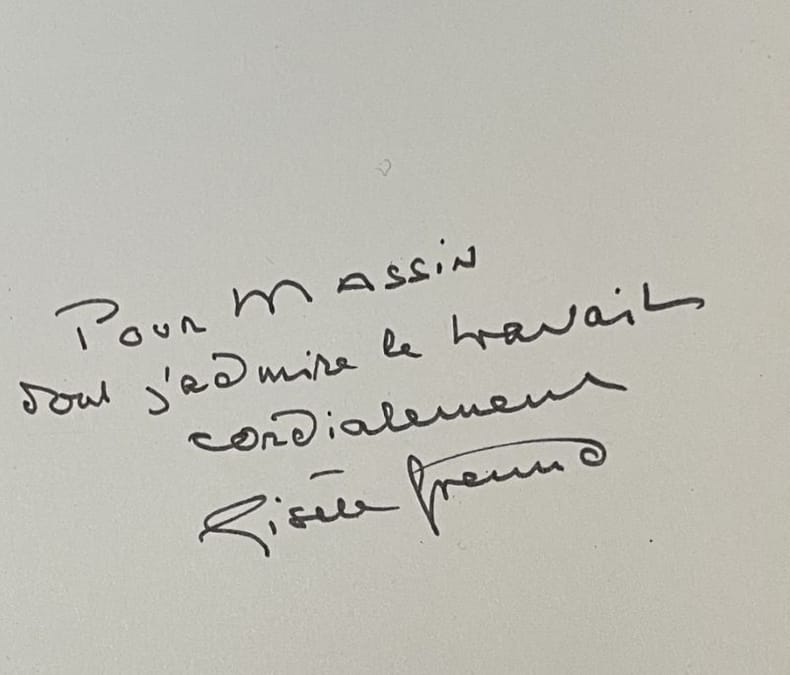 Pour MASSIN
dont j'admire le travail
cordialement
Gisèle Freund